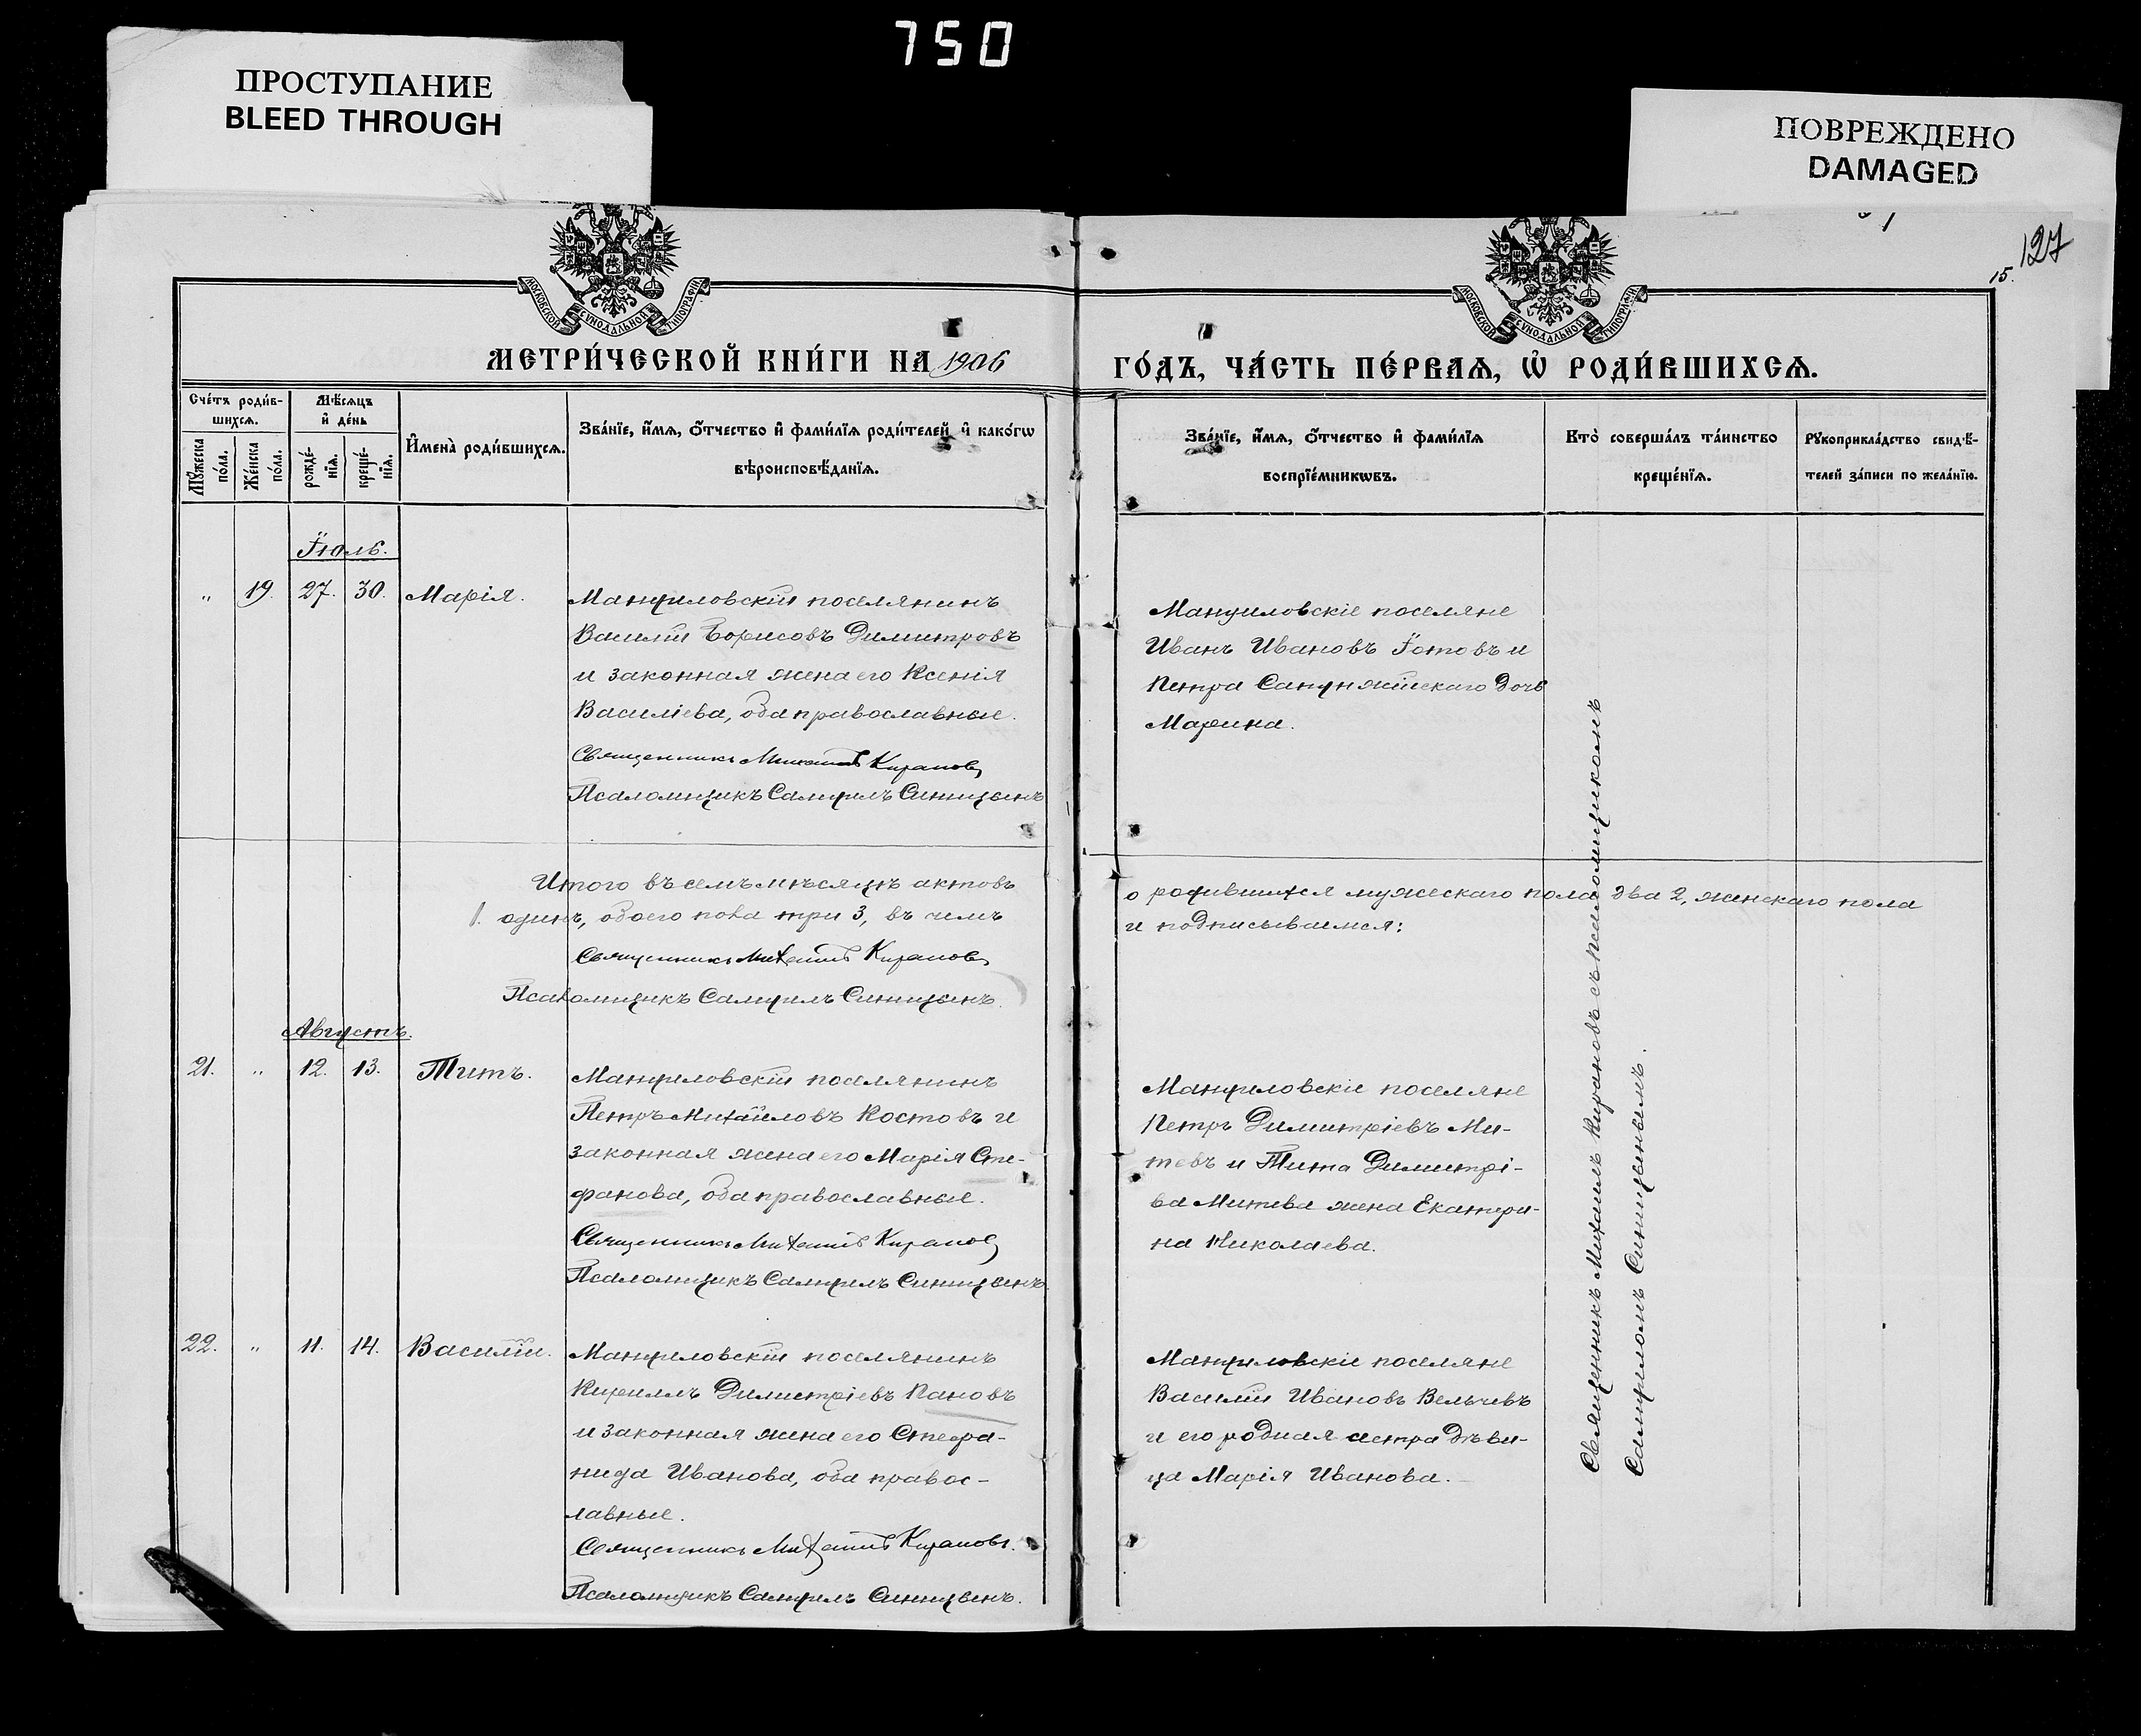 750
ПРОСТУПАНИЕ
BLEED THROUGH
ПОВРЕЖДЕНО
DAMAGED
127
15.
МОСКОВСКОЙ СѴНОДАЛЬНОЙ ТИПОГРАФІИ
МОСКОВСКОЙ СѴНОДАЛЬНОЙ ТИПОГРАФІИ
МЕТРИ́ЧЕСКОЙ КНИ́ГИ НА 1906
ГО́ДЪ, ЧА́СТЬ ПЕ́РВАѦ, Ѡ҆ РОДИ́ВШИХСѦ.
Сче́тъ роди́в-
шихсѧ.
Мѣ́сѧцъ
и҆ де́нь
Мꙋ́жеска
по́ла.
Же́нска
по́ла.
рожде́-
нїѧ.
креще́-
нїѧ.
И҆мена̀ роди́вшихсѧ.
Зва́нїе, и҆́мѧ, ѻ҆́тчество и҆ фами́лїѧ роди́телей и҆ како́гѡ
вѣроисповѣ́данїѧ.
Зва́нїе, и҆́мѧ, ѻ҆́тчество и҆ фами́лїѧ
воспрїе́мникѡвъ.
Кто̀ соверша́лъ та́инство
креще́нїѧ.
Рꙋкоприкла́дство свидѣ́-
телей за́писи по жела́нїю.
Іюль.
" 19. 27. 30. Марія.
Мануиловскій поселянинъ
Василій Борисовъ Димитровъ
и законная жена его Ксенія
Василіева, оба православные.
Священникъ Михаилъ Кирановъ
Псаломщикъ Самуилъ Синицынъ
Мануиловскіе поселяне
Иванъ Ивановъ Іотовъ и
Петра Сапунжійскаго дочь
Марина.
Итого въ семъ мѣсяцѣ актовъ
о родившихся мужескаго пола два 2, женскаго пола
1. одинъ, обоего пола три 3, въ чемъ
и подписываемся:
Священникъ Михаилъ Кирановъ
Псаломщикъ Самуилъ Синицынъ.
Августъ.
21. " 12. 13. Титъ.
Мануиловскій поселянинъ
Петръ Михайловъ Костовъ и
законная жена его Марія Сте-
фанова, оба православные.
Священникъ Михаилъ Кирановъ
Псаломщикъ Самуилъ Синицынъ.
Мануиловскіе поселяне
Петръ Димитріевъ Ми-
тевъ и Тита Димитрі-
ва Митева жена Екатери-
на Николаева.
22. " 11. 14. Василій.
Мануиловскій поселянинъ
Кириллъ Димитріевъ Пановъ
и законная жена его Стефа-
нида Иванова, оба правос-
лавные.
Священникъ Михаилъ Кирановъ.
Псаломщикъ Самуилъ Синицынъ.
Мануиловскіе поселяне
Василій Ивановъ Вельчевъ
и его родная сестра дѣви-
ца Марія Иванова.
Священникъ Михаилъ Кирановъ съ псаломщикомъ
Самуиломъ Синицынымъ.